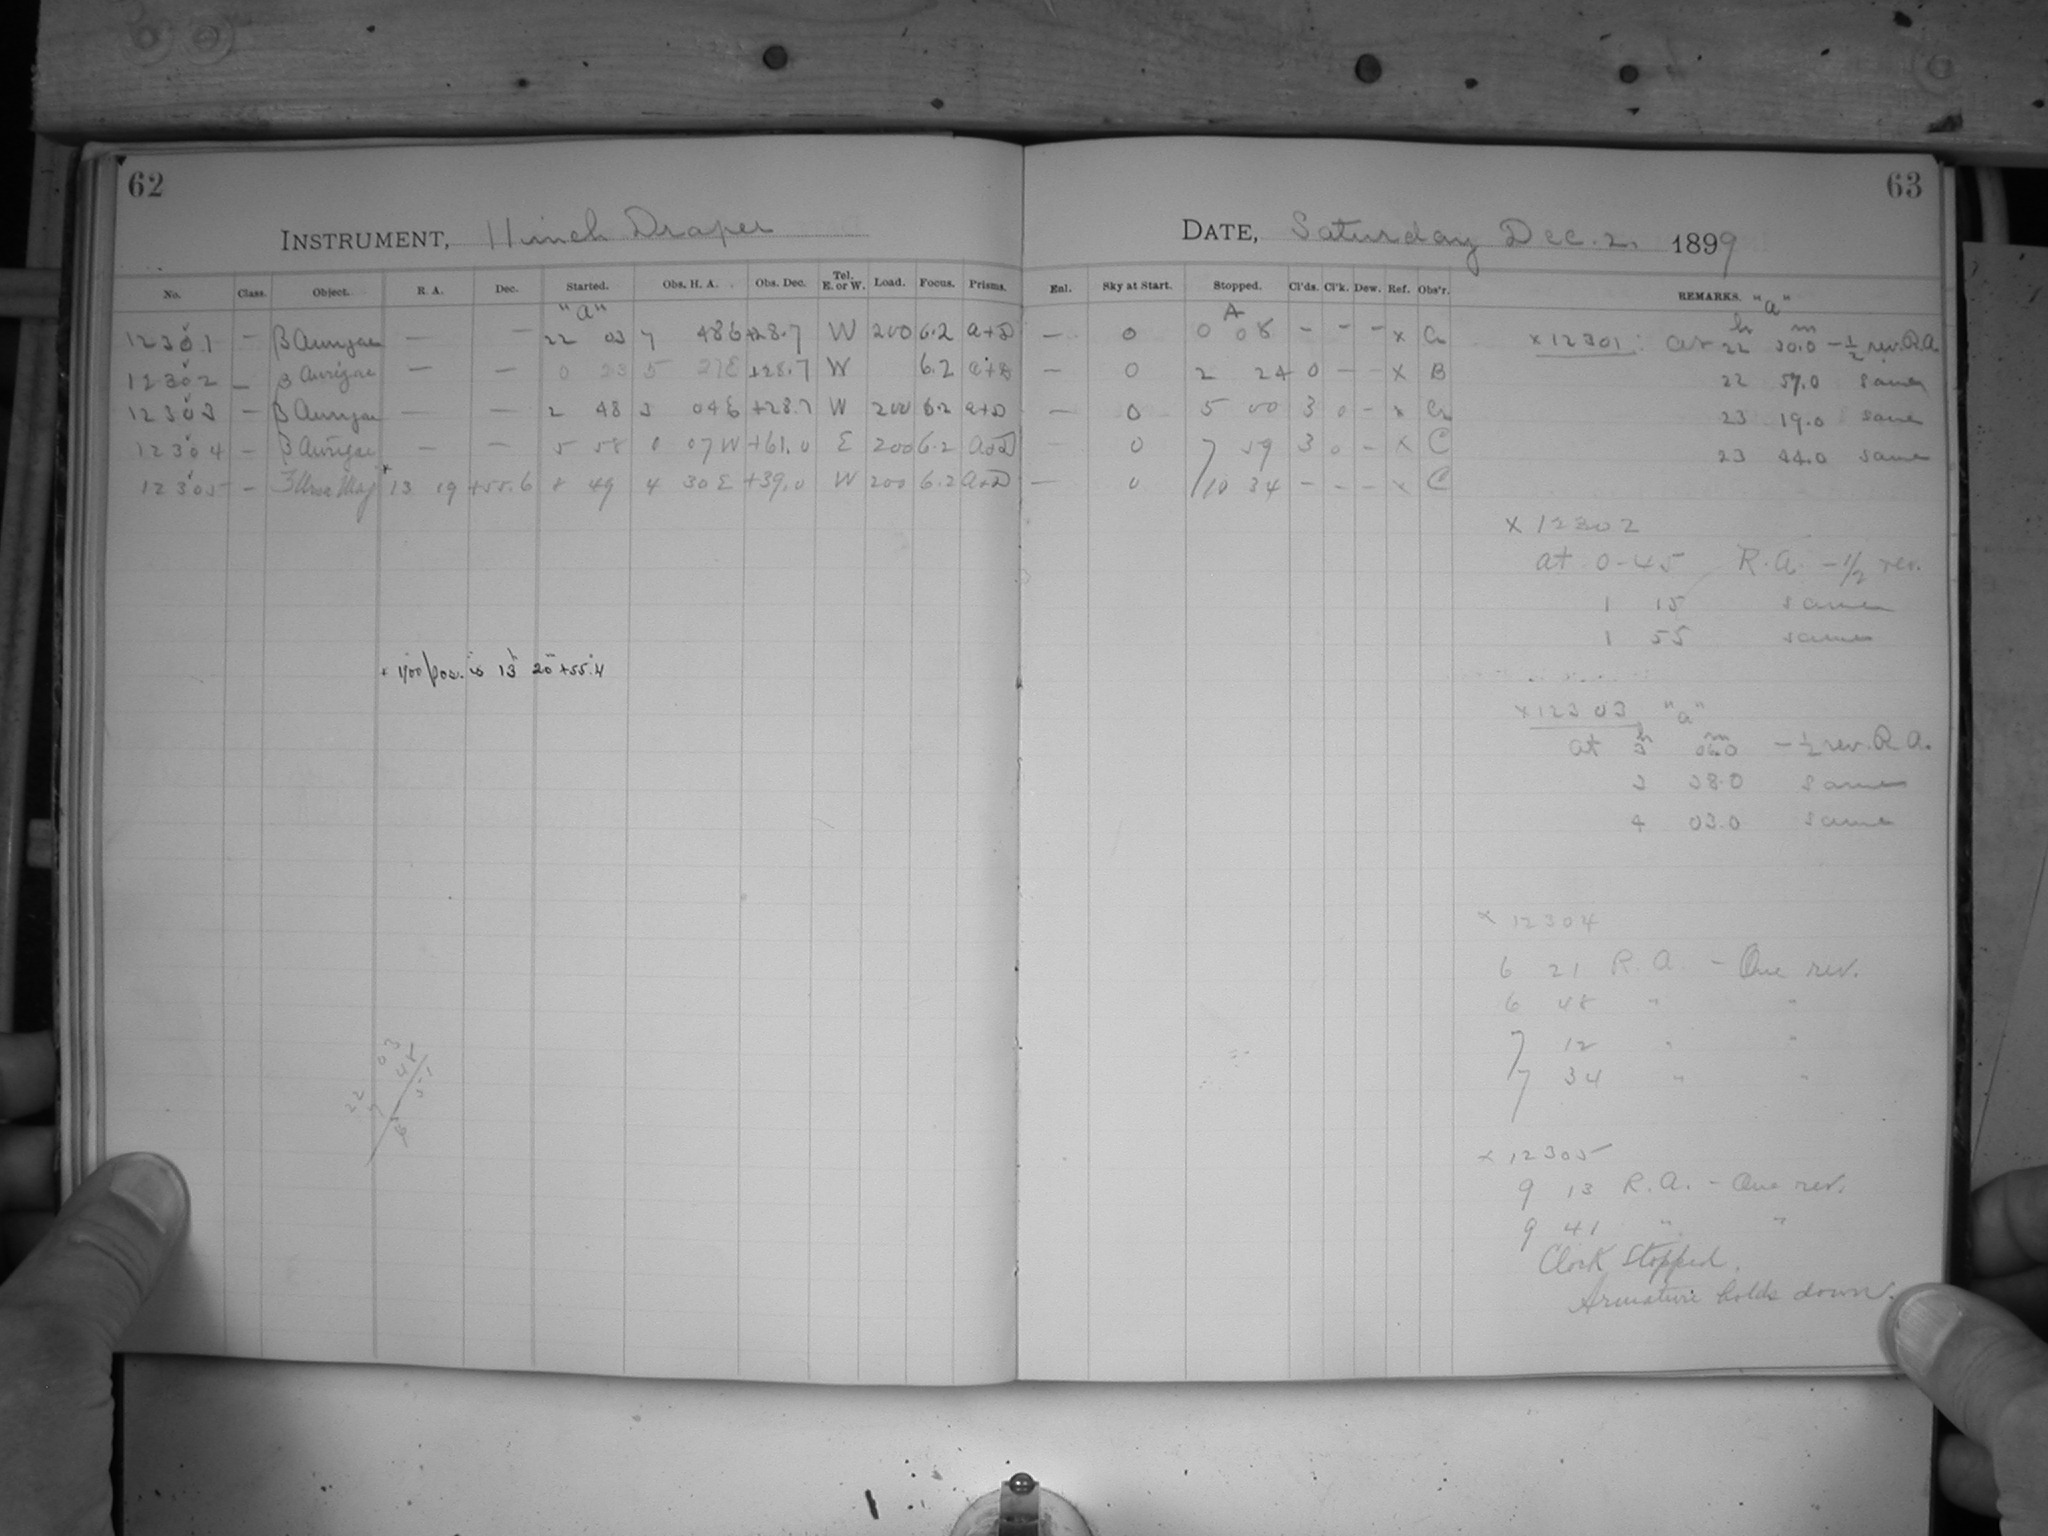 62
INSTRUMENT, 11 inch Draper
No. Class. Object. R. A. Dec. Started. Obs. H. A. Obs. Dec. Tel. E. or W. Load. Focus. Prisms.
"a"
12301 — β Aurigae — — 22 03 7 48 E +28.7 W 200 6.2 a+D
12302 — β Aurigae — — 0 23 5 27 E +28.7 W 6.2 a+B
12303 — β Aurigae — — 2 48 3 04 E +28.7 W 200 6.2 a+D
12304 — β Aurigae — — 5 58 0 07 W +61.0 E 200 6.2 a+D
12305 — ζ Ursa Maj × 13 19 +55.6 8 49 4 30 E +39.0 W 200 6.2 a+D
× 1900 pos. is 13h 20m +55°.4
22 03
7 48
5 51
63
DATE, Saturday Dec. 2, 1899
Enl. Sky at Start. Stopped. Cl'ds. Cl'k. Dew. Ref. Obs'r. REMARKS. "a"
A
— 0 0 08 — — — × Cr
— 0 2 24 0 — — × B
— 0 5 00 3 0 — × Cr
— 0 7 59 3 0 — × C
— 0 10 34 — — — × C
× 12301: at 22h 30.0m — ½ rev. R.A.
22 57.0 same
23 19.0 same
23 44.0 same
× 12302
at 0-45 R.A. — ½ rev.
1 15 same
1 55 same
× 12303 "a"
at 3h 06.0m — ½ rev. R.A.
3 38.0 same
4 03.0 same
× 12304
6 21 R.A. — One rev.
6 48 " "
7 12 " "
7 34 " "
× 12305
9 13 R.A. — One rev.
9 41 " "
Clock stopped.
Armature holds down.